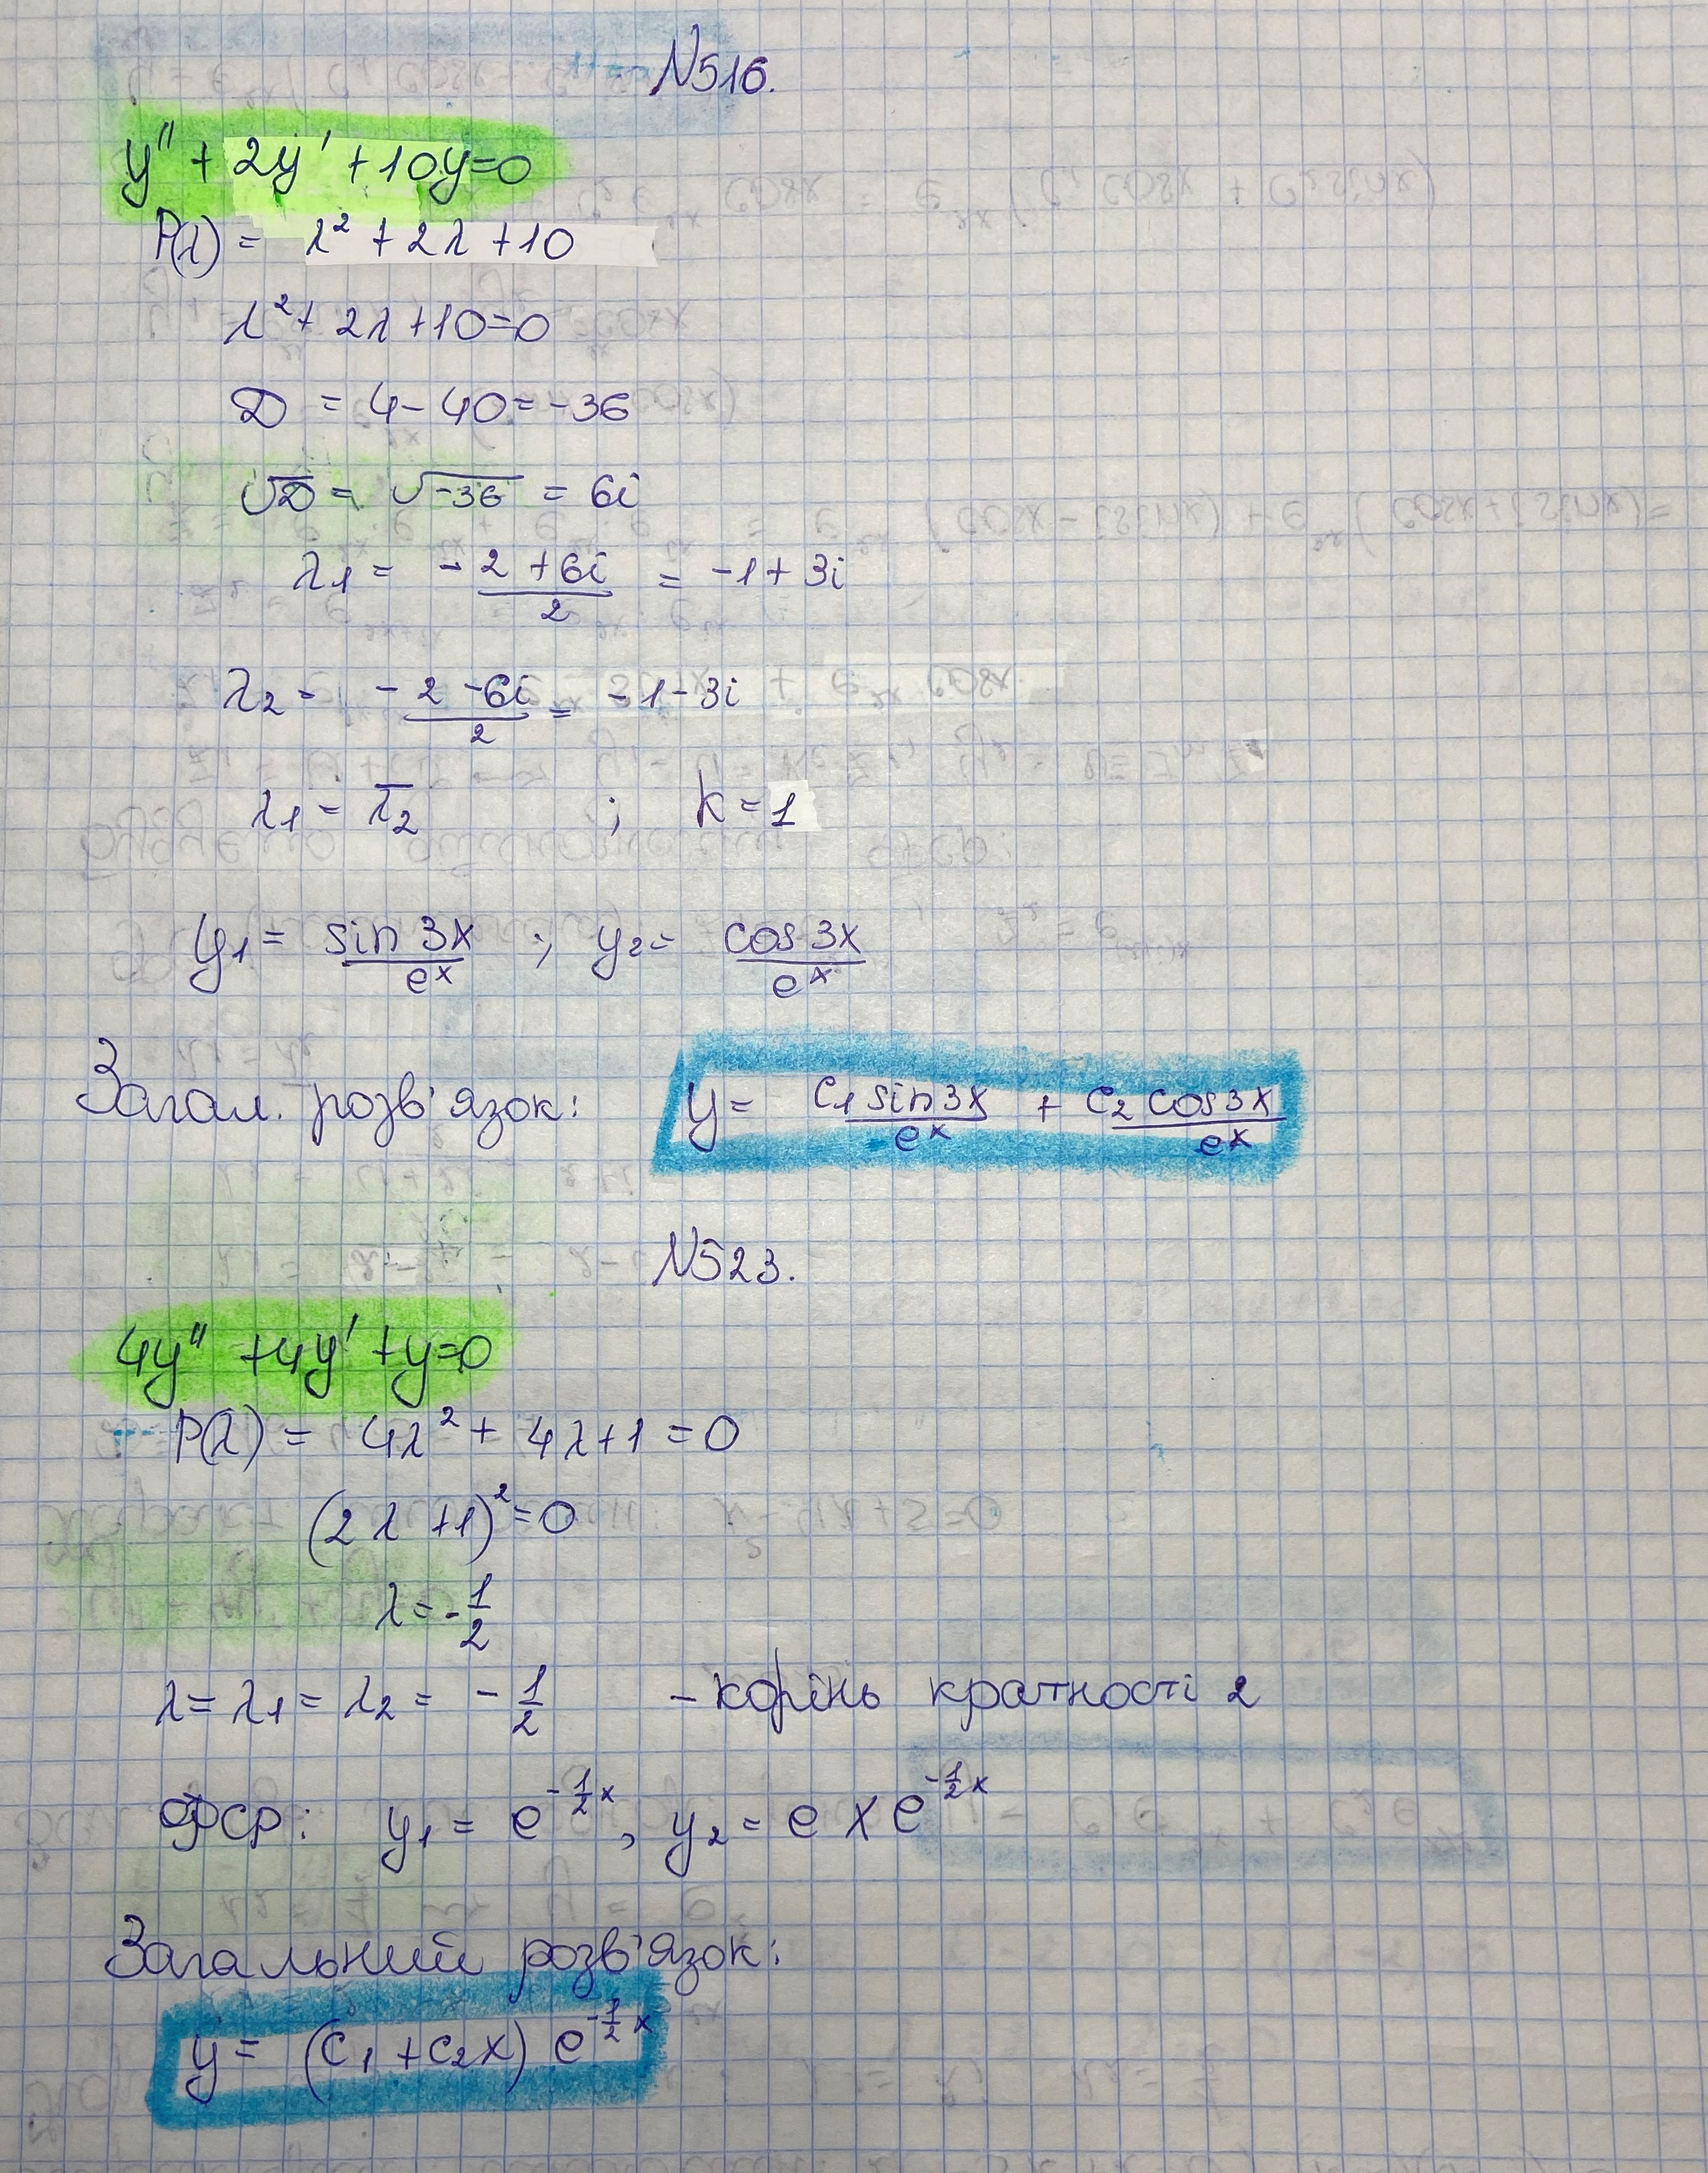 N516.
y'' + 2y' + 10y=0
P(λ) = λ² + 2λ + 10
λ² + 2λ + 10=0
D = 4 - 40 = -36
√D = √-36 = 6i
λ1 = (-2 + 6i)/2 = -1 + 3i
λ2 = (-2 - 6i)/2 = -1 - 3i
λ1 = λ̅2 ; k = 1
y1 = sin 3x/eˣ ; y2 = cos 3x/eˣ
Загал. розв'язок: y = C1 sin3x/eˣ + C2 cos3x/eˣ
N523.
4y'' + 4y' + y=0
P(λ) = 4λ² + 4λ + 1 = 0
(2λ + 1)² = 0
λ = -1/2
λ = λ1 = λ2 = -1/2 - корінь кратності 2
ФСР: y1 = e^(-1/2 x), y2 = e x e^(-1/2 x)
Загальний розв'язок:
y = (C1 + C2x) e^(-1/2 x)